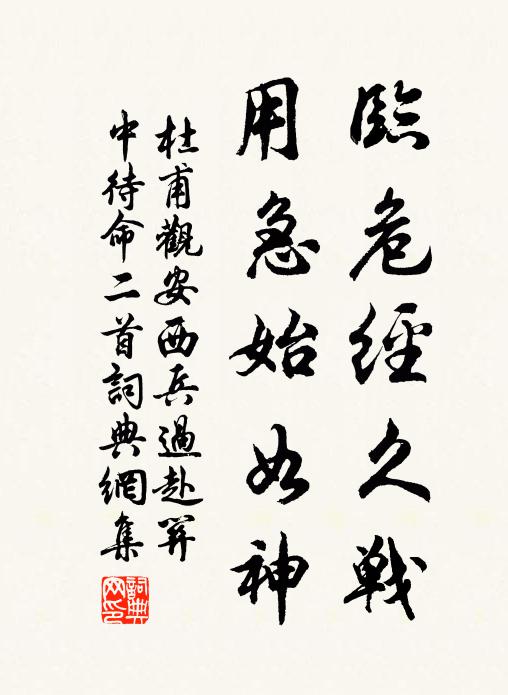 臨危經久戦
用急始如神
杜甫觀安西兵過赴関
中待命二首詞典網集
詞典
网印